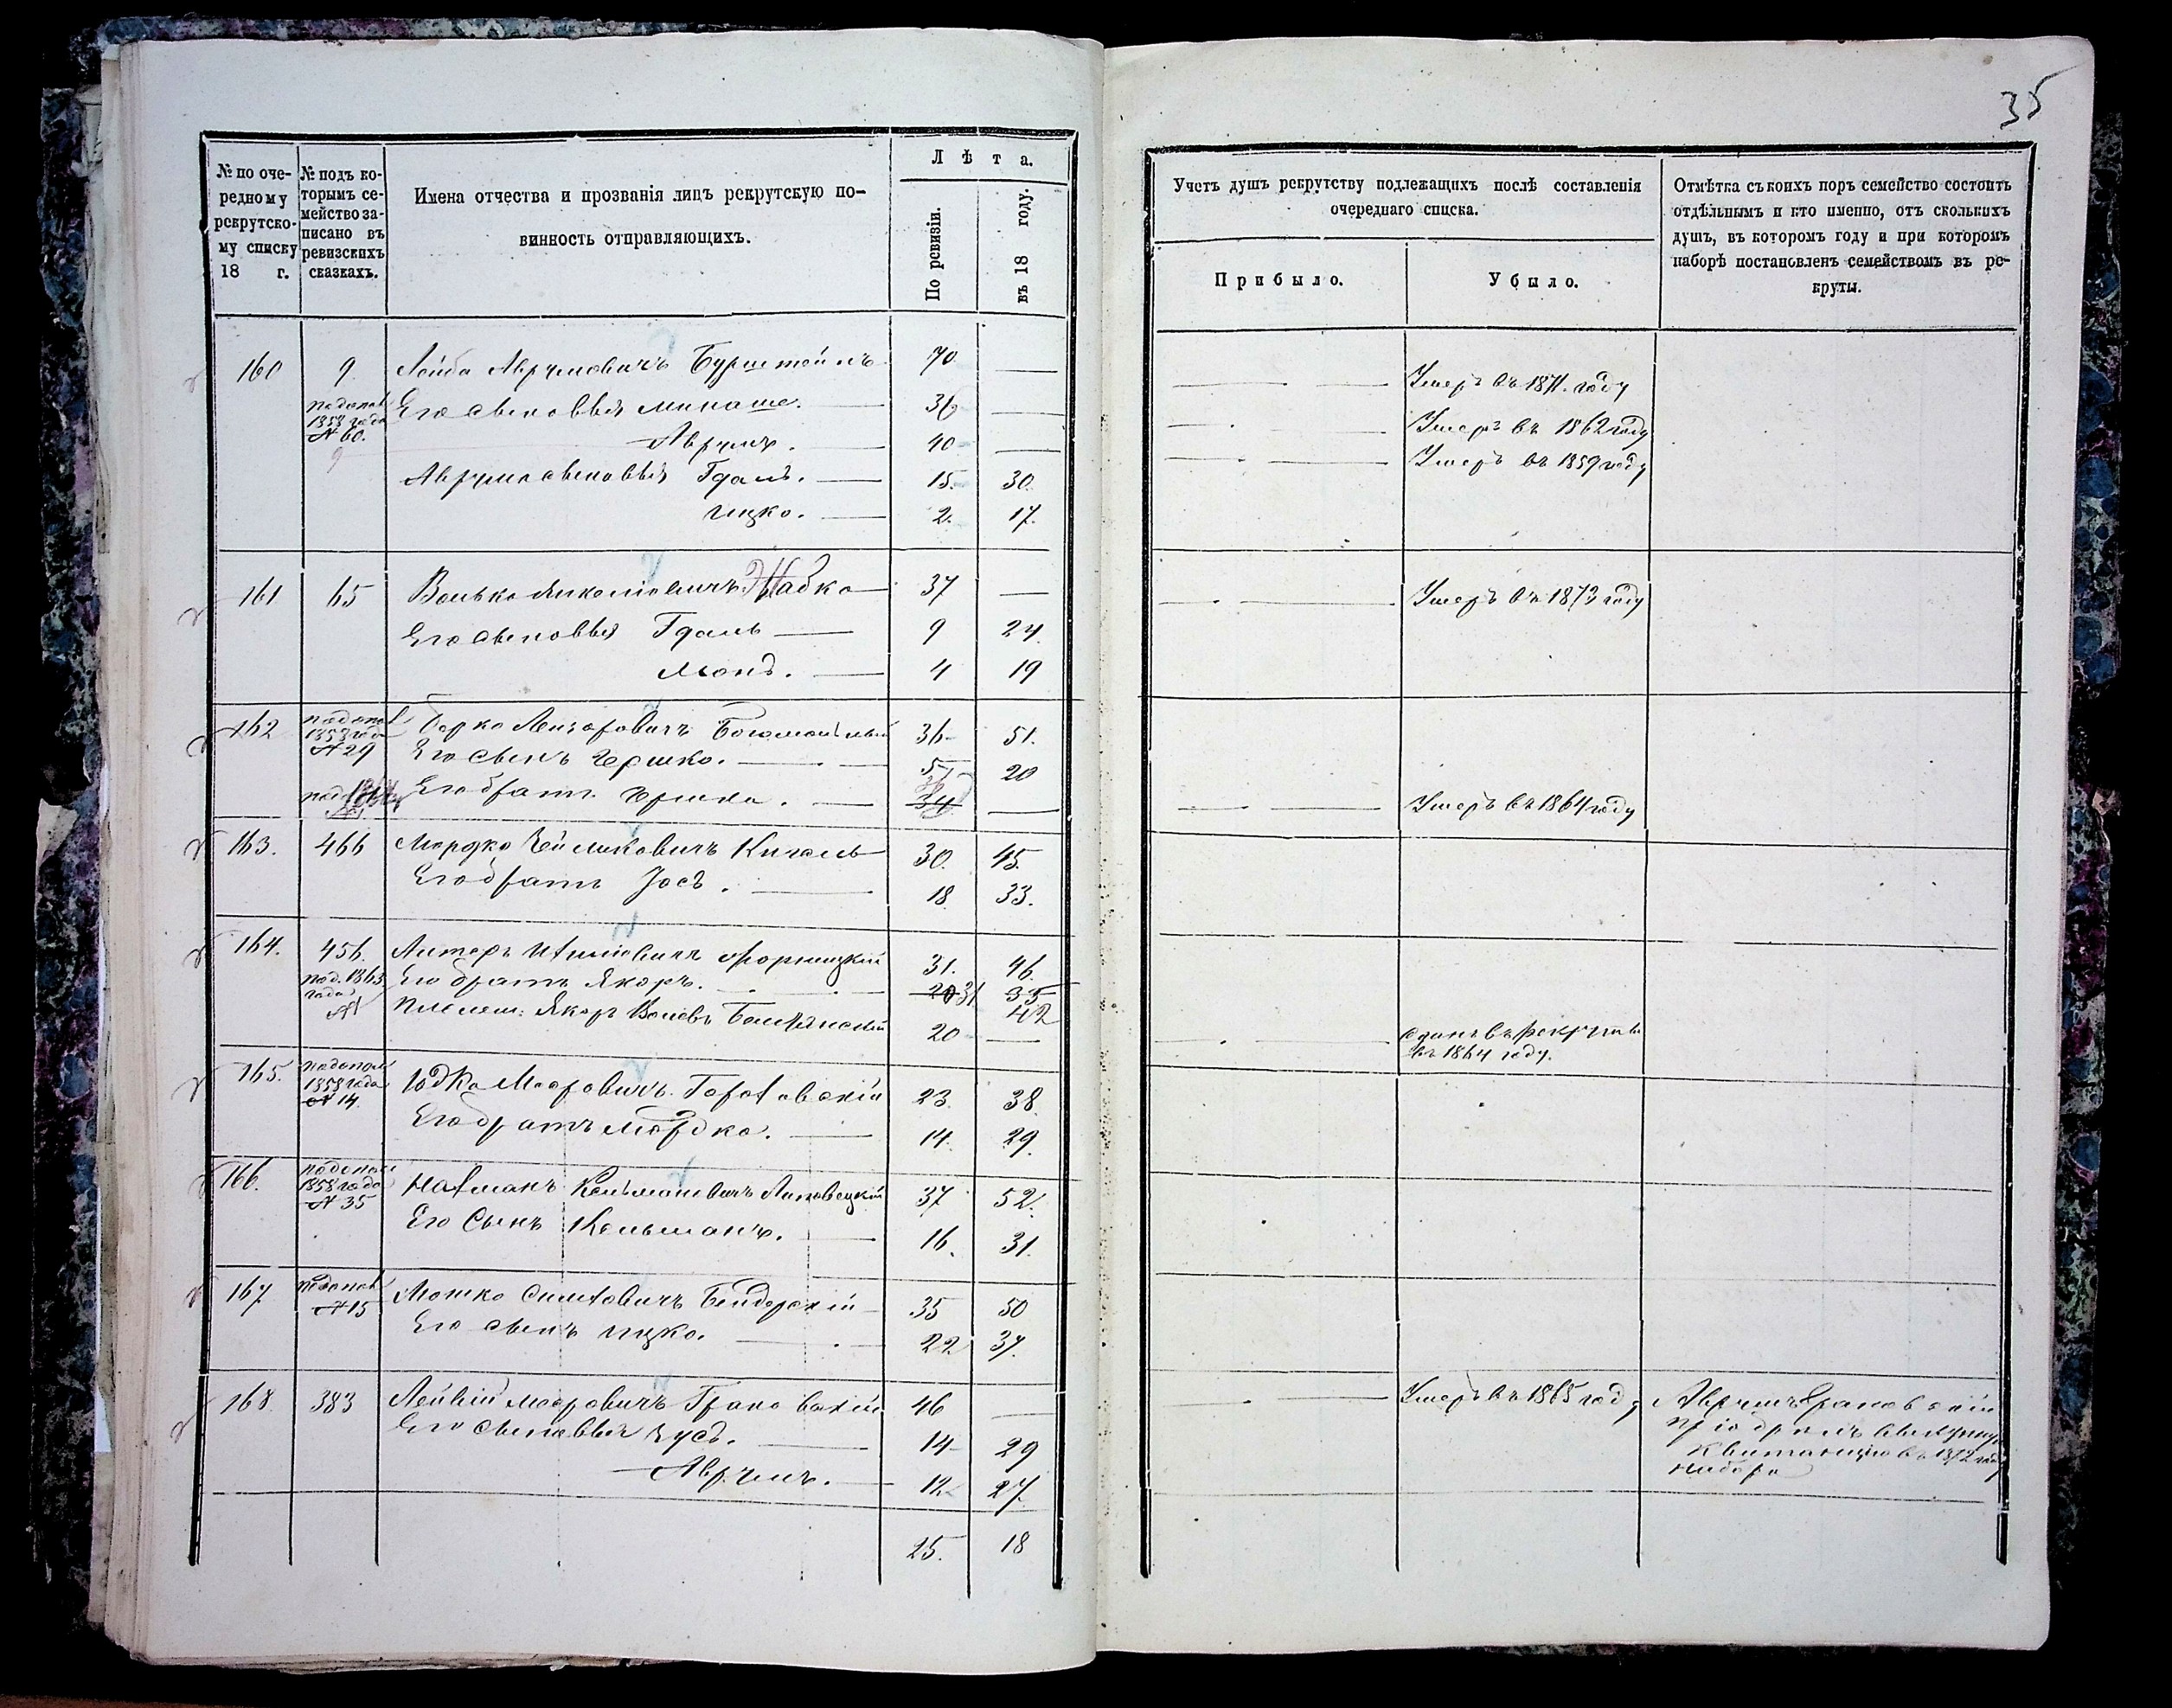 35
№ по оче-
редному
рекрутско-
му списку
18 г.
№ подъ ко-
торымъ се-
мейство за-
писано въ
ревизскихъ
сказкахъ.
Имена отчества и прозванія лицъ рекрутскую по-
винность отправляющихъ.
Лѣта.
По ревизіи.
въ 18 году.
Учетъ душъ рекрутству подлежащихъ послѣ составленія
очереднаго списка.
Прибыло.
Убыло.
Отмѣтка съ коихъ поръ семейство состоитъ
отдѣльнымъ и кто именно, отъ сколькихъ
душъ, въ которомъ году и при которомъ
наборѣ постановленъ семействомъ въ ре-
круты.
160 9. Лейба Аврумовичъ Бурштейнъ 70 — Умеръ въ 1871. году
подопол 1858 года № 60. Его сыновья Минаше. — Умеръ въ 1862 году
9 Аврумъ. 40 — Умеръ въ 1859 году
Аврума сыновья Гдаль. 15. 30.
Ицко. 2. 17.
161 65 Волько Жабка 37 — Умеръ въ 1873 году
Его сыновья Гдаль 9 24.
4 19
162 подопол 1858 года № 29 Берко Лейзоровичъ 36 51.
Его сынъ Гершко. 5 20
Его братъ 34 — Умеръ въ 1864 году
163. 466 Мордко Кигель 30. 45.
Его братъ Іосъ. 18 33.
164. 456. Литеръ 31. 46.
под. 1863 года № Его братъ Якоръ. 20 31 35
42
Племян: Якоръ 20 — Сданъ въ рекруты
въ 1864 году.
165. подопол 1858 года № 14. Юдко Меоровичъ 23. 38.
Его братъ Мордко. 14. 29.
166. подопол 1858 года № 35 Нахманъ Кельмановичъ Липовецкій 37 52.
Его сынъ Кельманъ. 16. 31.
167 подопол № 15 Мошко Бендерскій 35 50
Его сынъ Ицко. 22 37.
168. 383 Меоровичъ Грановскій 46 — Умеръ въ 1865 году Аврумъ Грановскій
Его сыновья Зусь. 14 29
пріобрелъ
Аврумъ. 12 27.
квитанцію въ 1872 году
набора
25. 18